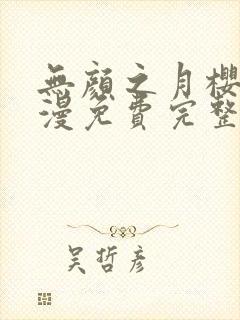 無顏之月櫻
漫免費完整
吴哲彦